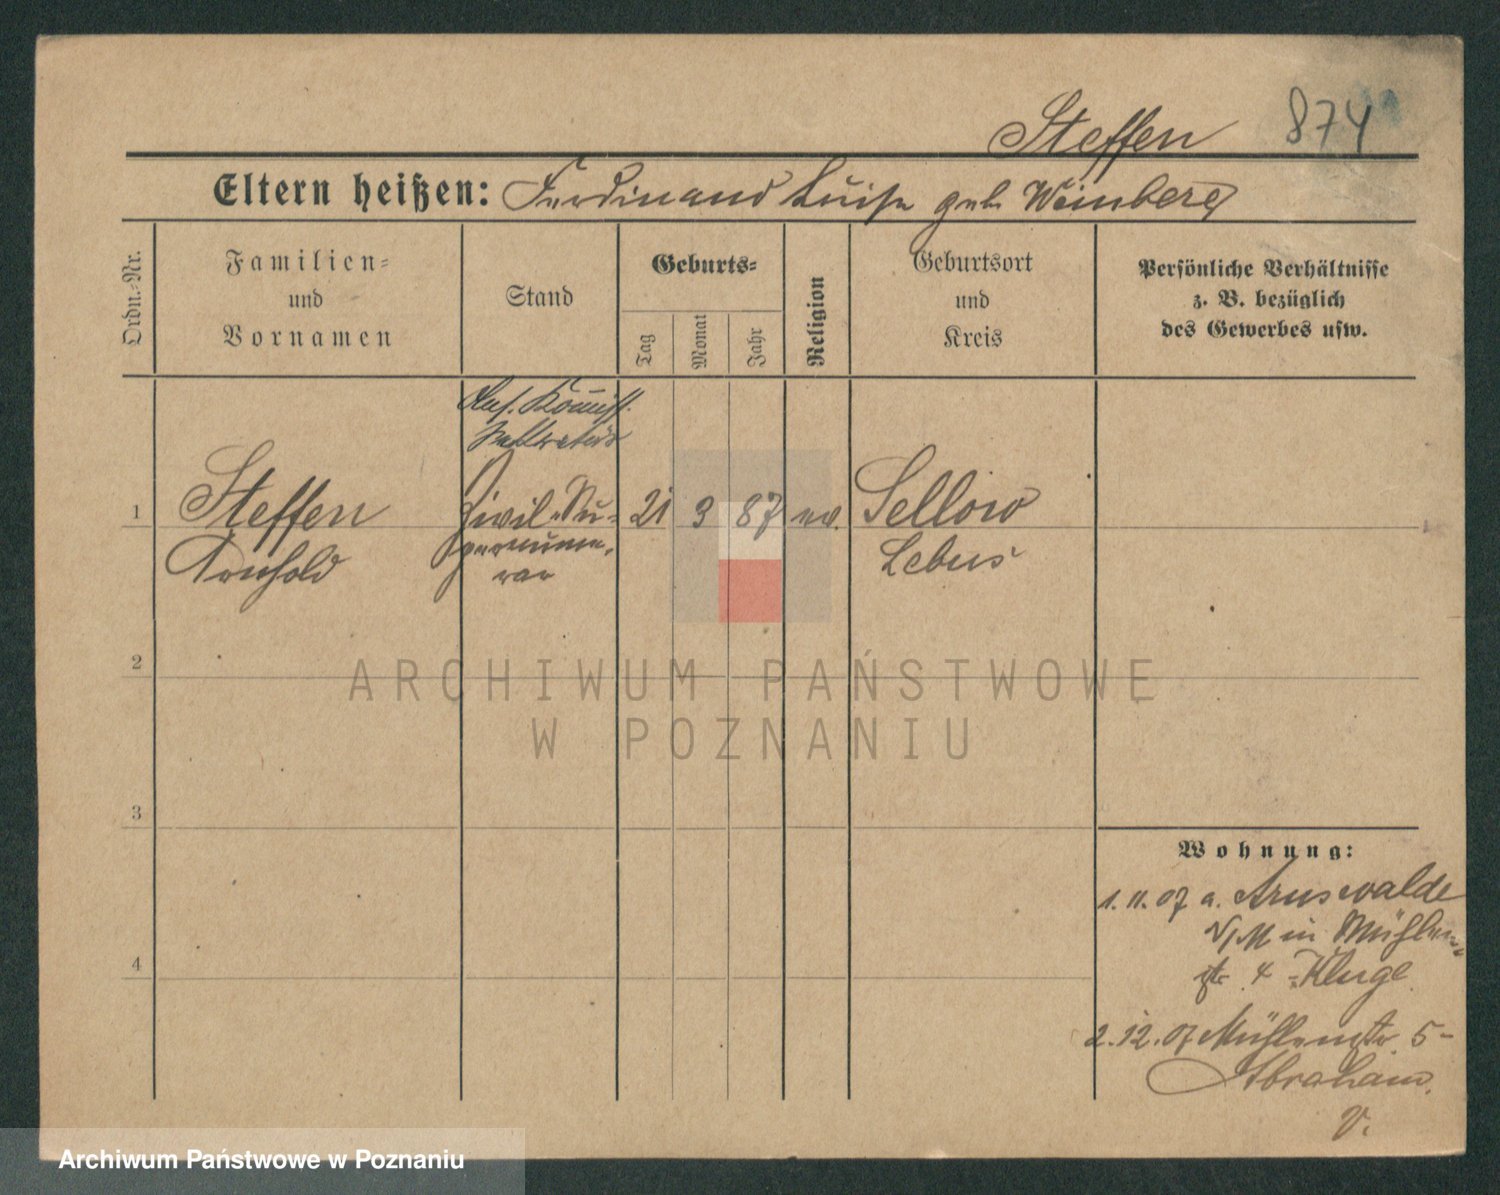 Steffen 874
Eltern heißen: Ferdinand Luise geb. Weinberg
Ordn.-Nr.
Familien-
und
Vornamen
Stand
Geburts-
Tag
Monat
Jahr
Religion
Geburtsort
und
Kreis
Persönliche Verhältnisse
z. B. bezüglich
des Gewerbes usw.
1
Steffen
Arnhold
Ans. Kommiss.
Sekretär
Zivil-Su-
pernume-
rar
21 9 87 ev.
Sellow
Lebus
2
3
4
Wohnung:
1.11.07 a. Arnswalde
N/M in Mühlen-
str. 4 - Kluge
2.12.07 Mühlenstr. 5-
Abraham.
V.
ARCHIWUM PAŃSTWOWE
W POZNANIU
Archiwum Państwowe w Poznaniu